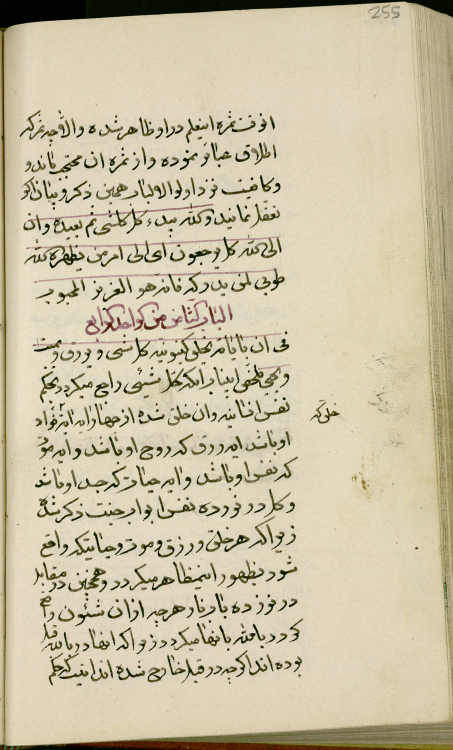 255
انوقت ثمره اینعلم در او ظاهر شده والا چه ثمر که
اطلاق عبا نمو نموده و از ثمره ان محتجب ماند و
و کافیست نزد اولوالالباب همین ذکر و بیان اکر
تعقل نمایند و الله یبدء کل کلشئ ثم یعیده و ان
الی الله کل یرجعون ای الی امر من یظهره الله
طوبی لمن یدرکه فانه هو العزیز المحبوب
الباب الثامن من الواحد
فی ان بایاته یخلق کینونیة کلشئ و یرزق و یمیت
و یحیی ملخص این باب انکه کلشئی راجع میکردد بحکم
نفس انسانیه و ان خلق شده از چهار ایه ایه فؤاد
او باشد ایه رزق که روح او باشد و ایه موت
که نفس او باشد و ایه حیات که جسد او باشد
خلق که
و کل در نوزده نفس ابواب جنت ذکر شده
زیرا که هر خلق و رزق و موت و حیاتیکه واقع
شود بظهور اینها ظاهر میکردد و همچنین در مقابل
در نوزده باب نار هرچه از ان شئون واقع
کردد بامثله بانها میکردد زیرا که انها در باب قبل
بوده اند اکرچه در قبل خارج شده اند انیست که حکم